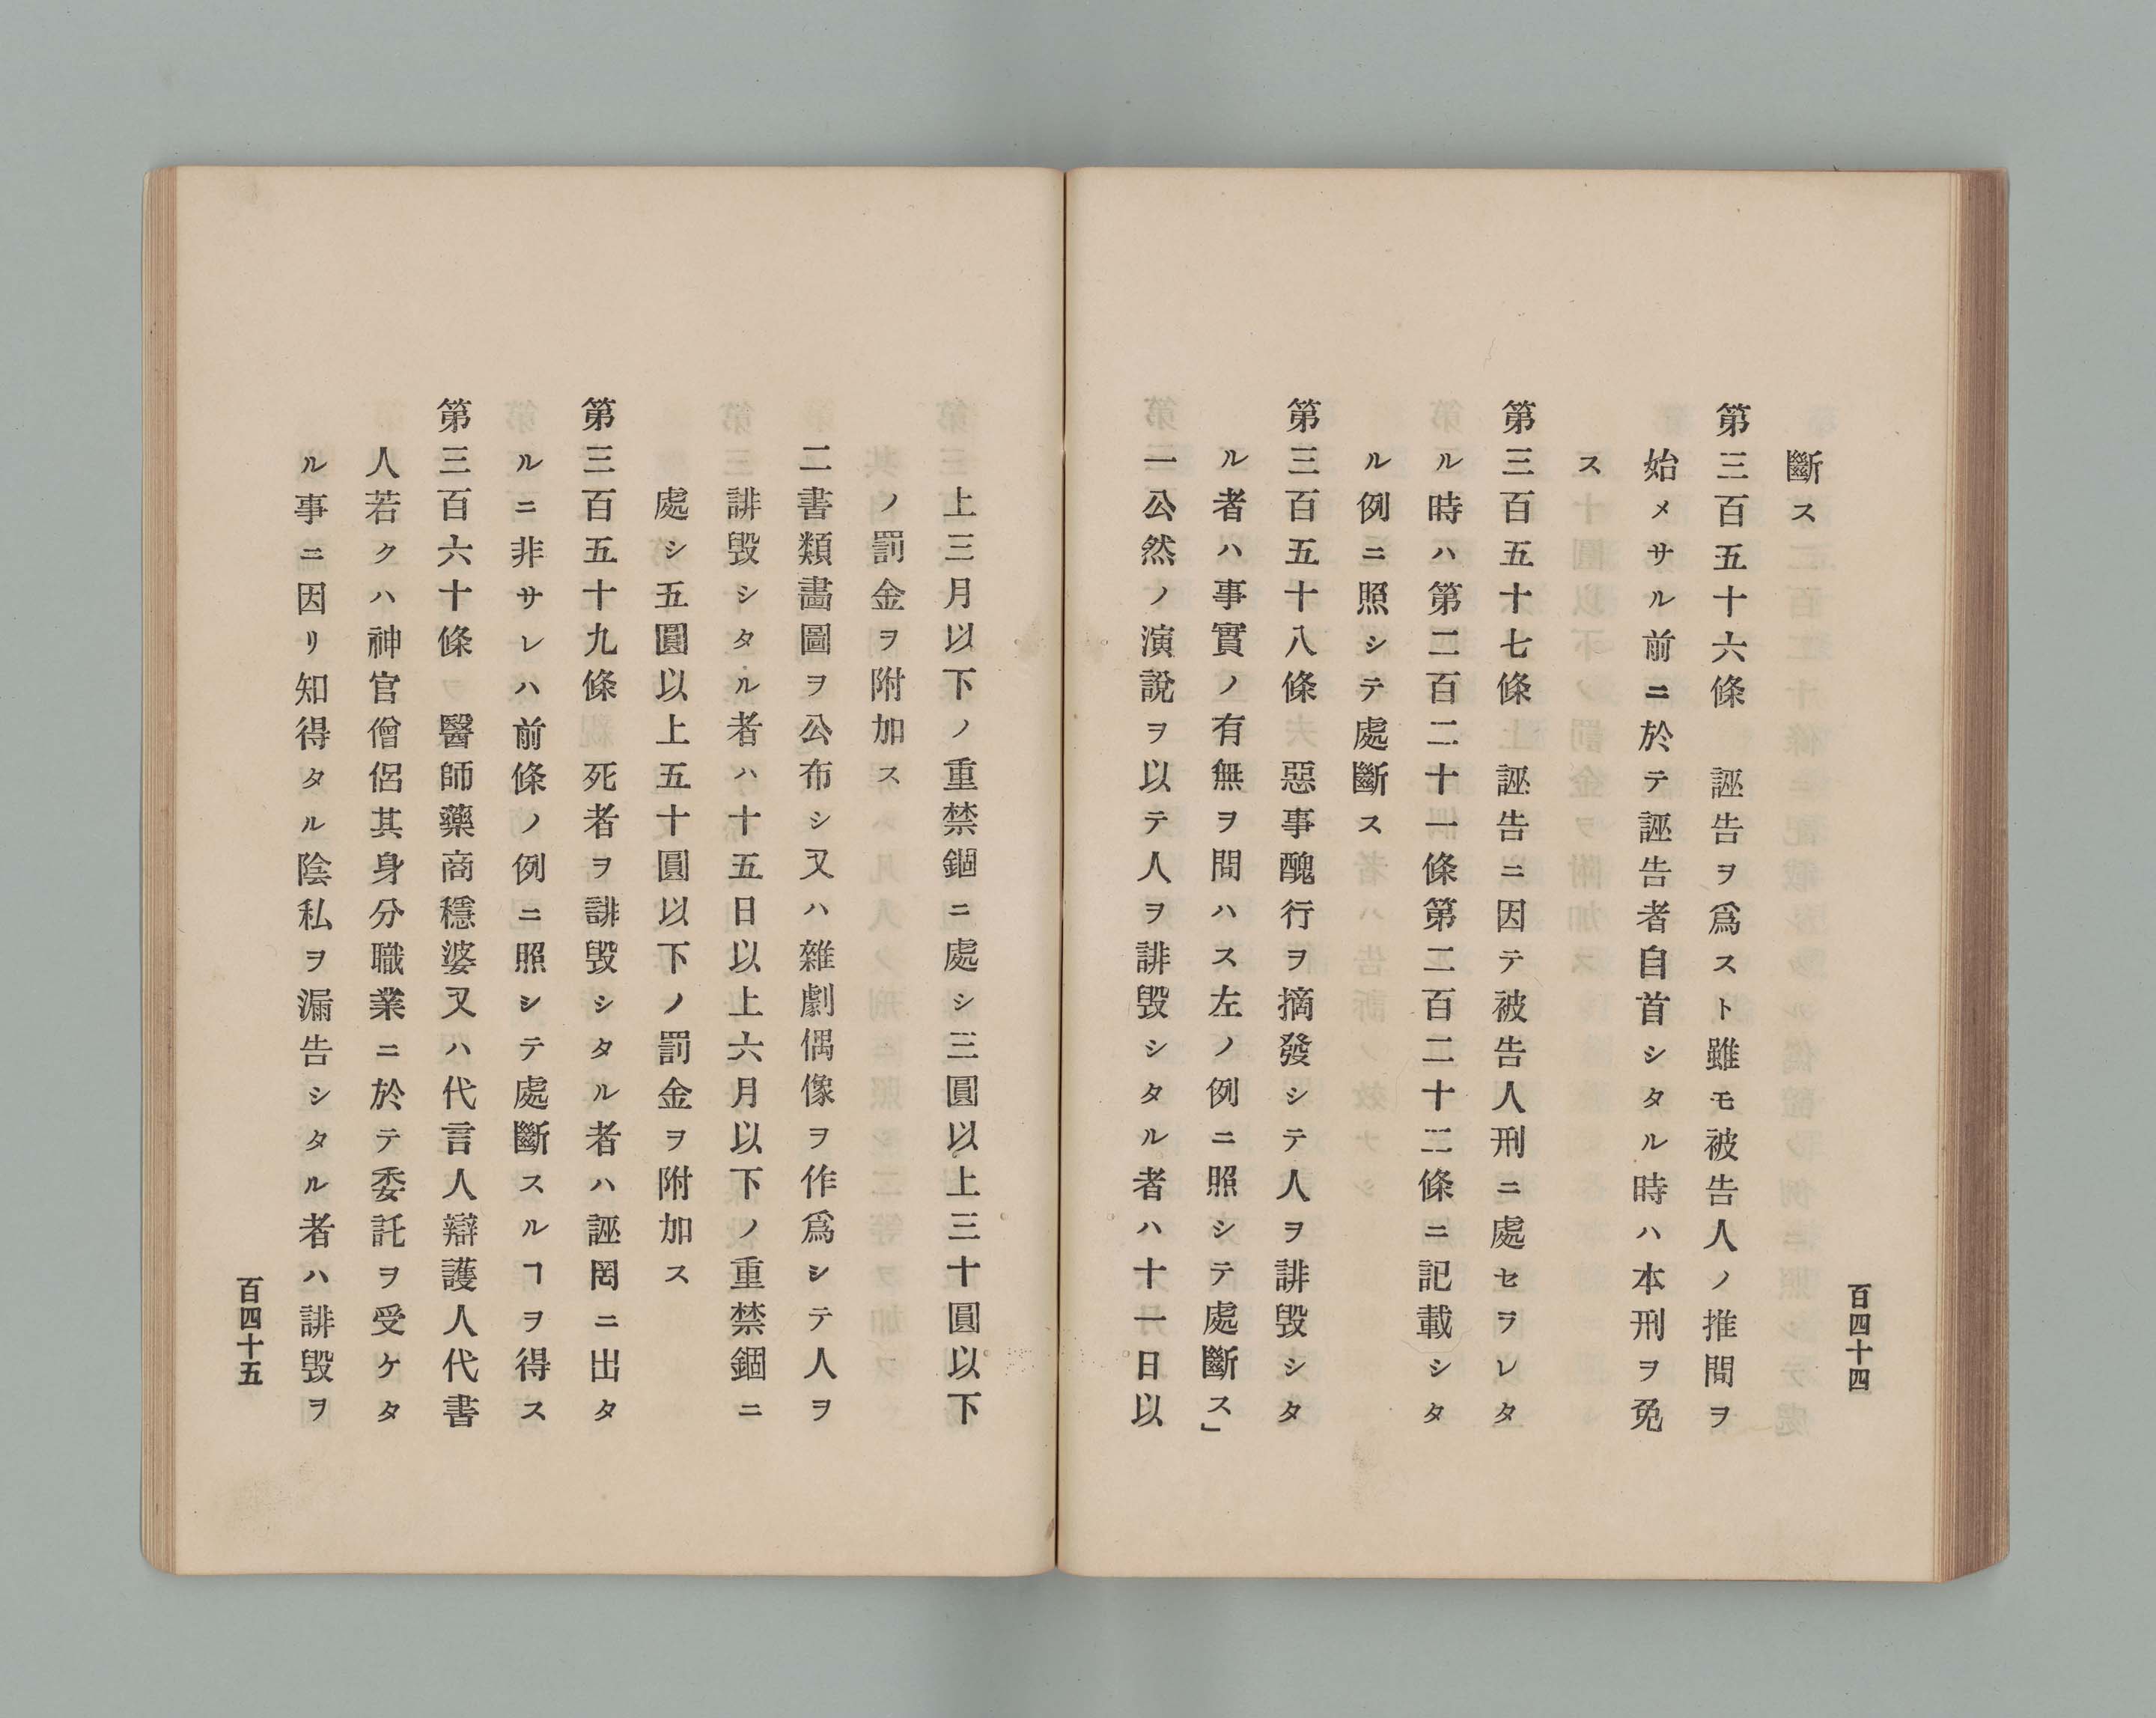 百四十四
斷ス
第三百五十六條　誣告ヲ爲スト雖モ被告人ノ推問ヲ
始メサル前ニ於テ誣告者自首シタル時ハ本刑ヲ免
ス
第三百五十七條　誣告ニ因テ被告人刑ニ處セヲレタ
ル時ハ第二百二十一條第二百二十二條ニ記載シタ
ル例ニ照シテ處斷ス
第三百五十八條　惡事醜行ヲ摘發シテ人ヲ誹毀シタ
ル者ハ事實ノ有無ヲ問ハス左ノ例ニ照シテ處斷ス」
一公然ノ演說ヲ以テ人ヲ誹毀シタル者ハ十一日以
上三月以下ノ重禁錮ニ處シ三圓以上三十圓以下
ノ罰金ヲ附加ス
二書類畵圖ヲ公布シ又ハ雜劇偶像ヲ作爲シテ人ヲ
誹毀シタル者ハ十五日以上六月以下ノ重禁錮ニ
處シ五圓以上五十圓以下ノ罰金ヲ附加ス
第三百五十九條　死者ヲ誹毀シタル者ハ誣罔ニ出タ
ルニ非サレハ前條ノ例ニ照シテ處斷スルヿヲ得ス
第三百六十條　醫師藥商穩婆又ハ代言人辯護人代書
人若クハ神官僧侶其身分職業ニ於テ委託ヲ受ケタ
ル事ニ因リ知得タル陰私ヲ漏告シタル者ハ誹毀ヲ
百四十五